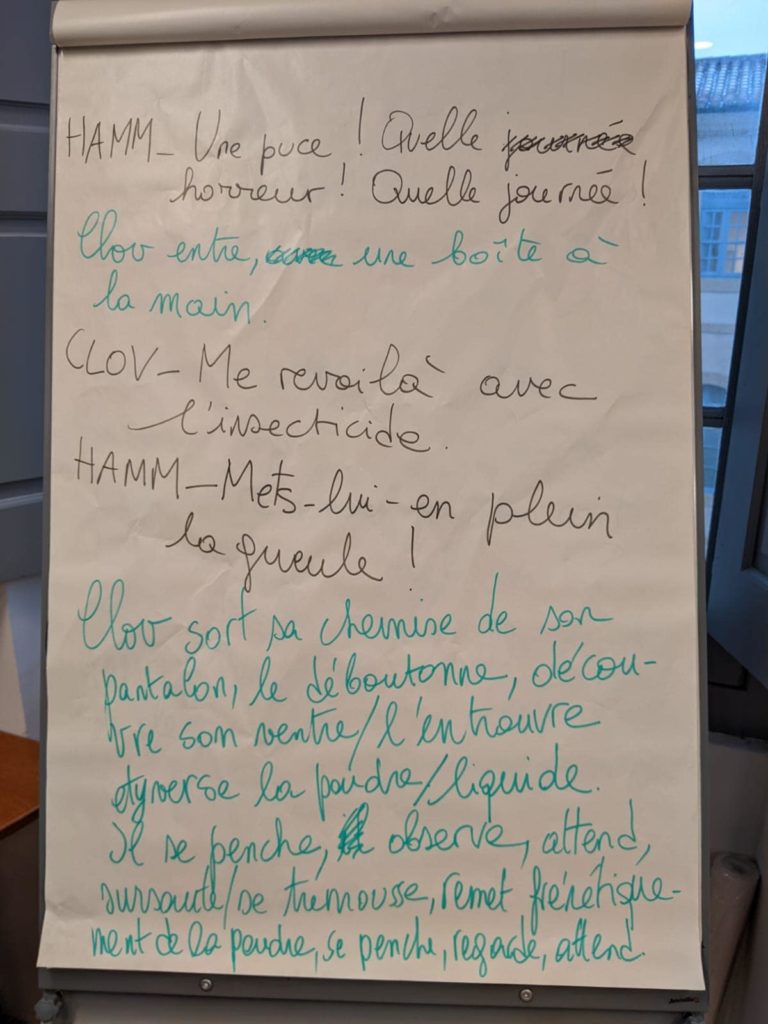 HAMM_ Une puce ! Quelle journée
horreur ! Quelle journée !
Clov entre, une boîte à
la main.
CLOV_ Me revoilà avec
l'insecticide.
HAMM_Mets-lui-en plein
la gueule !
Clov sort sa chemise de son
pantalon, le déboutonne, décou-
vre son ventre/l'entrouvre
et y verse la poudre/liquide.
Il se penche, observe, attend,
sursaute/se trémousse, remet frénétique-
ment de la poudre, se penche, regarde, attend.